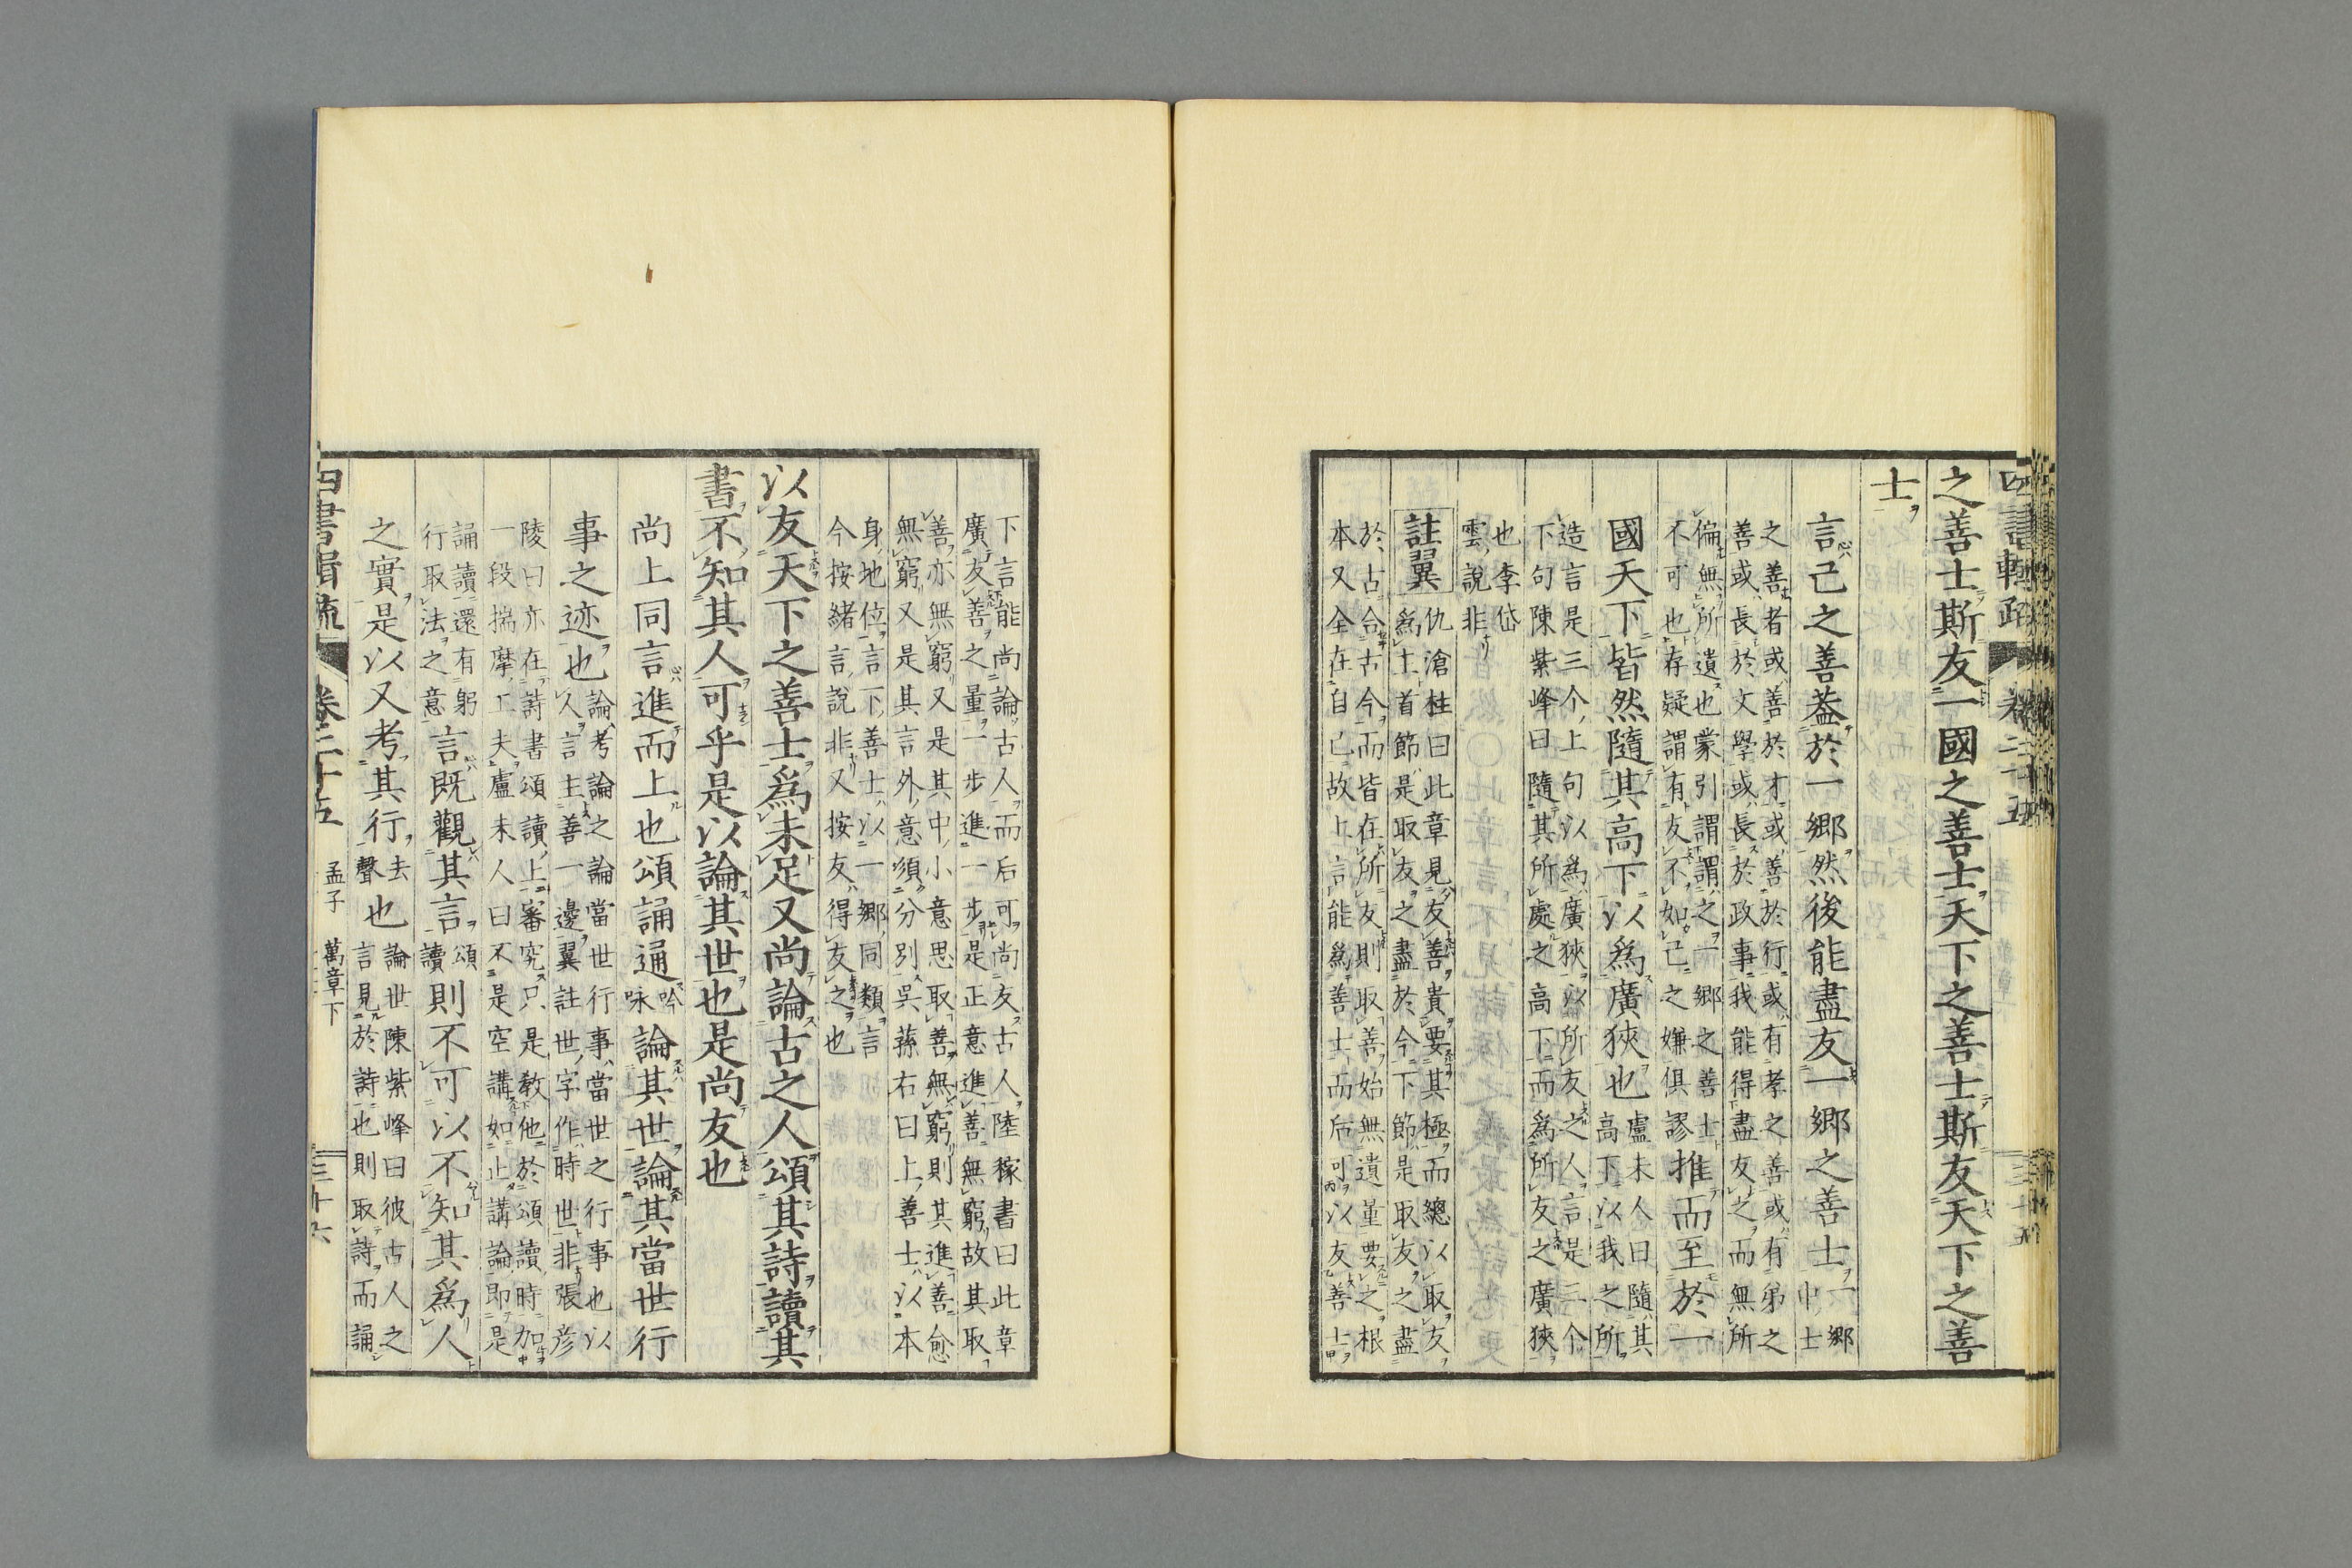 之善士斯友一國之善士天下之善士斯友天下之善
士
言己之善蓋於一鄉然後能盡友一鄉之善士一鄉
中士
之善者或善於才或善於行或有孝之善或有弟之
善或長於文學或長於政事我能得盡友之而無所
偏無所遺也蒙引謂謂之一鄉之善士
不可也存疑謂有友不如己之嫌俱謬推而至於一
國天下皆然隨其高下以爲廣狹也盧未人曰隨其
高下以我之所
造言是三个上句以爲廣狹以所友之人言是二个
下句陳紫峰曰隨其所處之高下而爲所友之廣狹
也李岱
雲說非
註翼仇滄柱曰此章見友善貴要其極而總以取友
爲主首節是取友之盡於今下節是取友之盡
於古合古今而皆在所友則取善始無遺量要之根
本又全在自己故上言能爲善士而后可以友善士
下言能尚論古人而后可尚友古人陸稼書曰此章
廣友善之量一步進一步是正意進善無窮故其取
善亦無窮又是其中小意思取善無窮則其進善愈
無窮又是其言外意須分別吳蓀右曰上善士以本
身地位言下善士以一鄉同類言
今按緒言說非又按友得友之也
以友天下之善士爲未足又尚論古之人頌其詩讀其
書不知其人可乎是以論其世也是尚友也
尚上同言進而上也頌誦通吟
咏論其世論其當世行
事之迹也論考論之論當世行事當世之行事也以
人言主善一邊翼註世字作時世非張彥
陵曰亦在詩書頌讀上審究只是教他於頌讀時加
一段揣摩工夫盧未人曰不是空講如止講論即是
誦讀還有躬
行取法之意言既觀其言頌
讀則不可以不知其爲人
之實是以又考其行去
聲也論世陳紫峰曰彼古人之
言見於詩也則取詩而誦
四書輯疏 卷二十五 孟子 萬章下 三十六